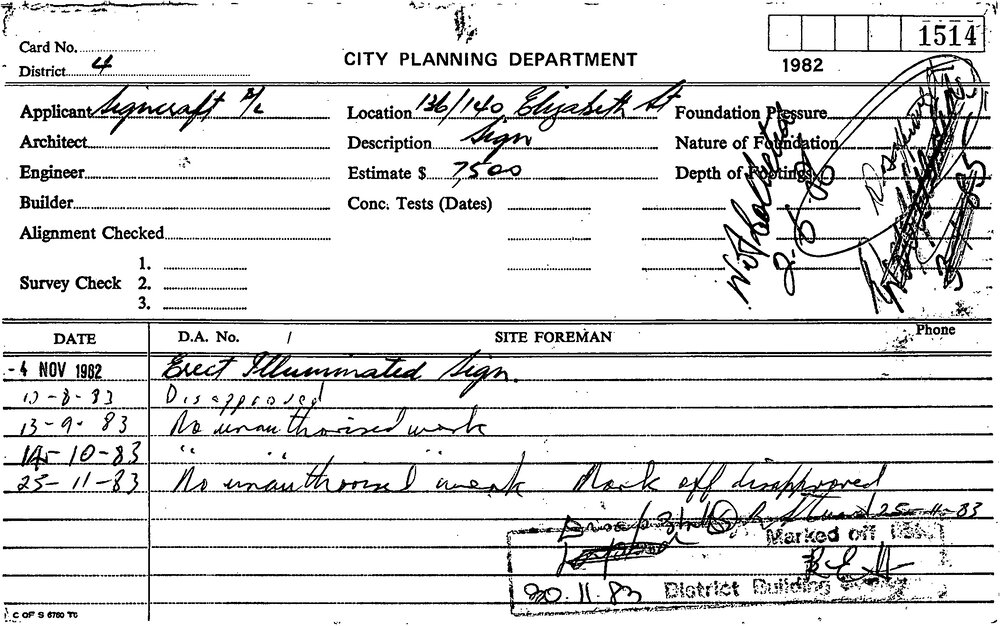 1514
Card No.
District 4
CITY PLANNING DEPARTMENT
1982
Applicant Signcraft P/L
Location 136/140 Elizabeth St
Foundation Pressure
Architect
Description Sign
Nature of Foundation
Engineer
Estimate $ 7,500
Depth of Footings
Builder
Conc. Tests (Dates)
Alignment Checked
Survey Check
1.
2.
3.
DATE
D.A. No. /
SITE FOREMAN
Phone
- 4 NOV 1982 Erect Illuminated Sign.
Disapproved
13-9-83 No unauthorised work
14-10-83 " " "
25-11-83 No unauthorised work Mark off disapproved
25-11-83
Marked off
30.11.83 District Building
C OF S 6760 T6